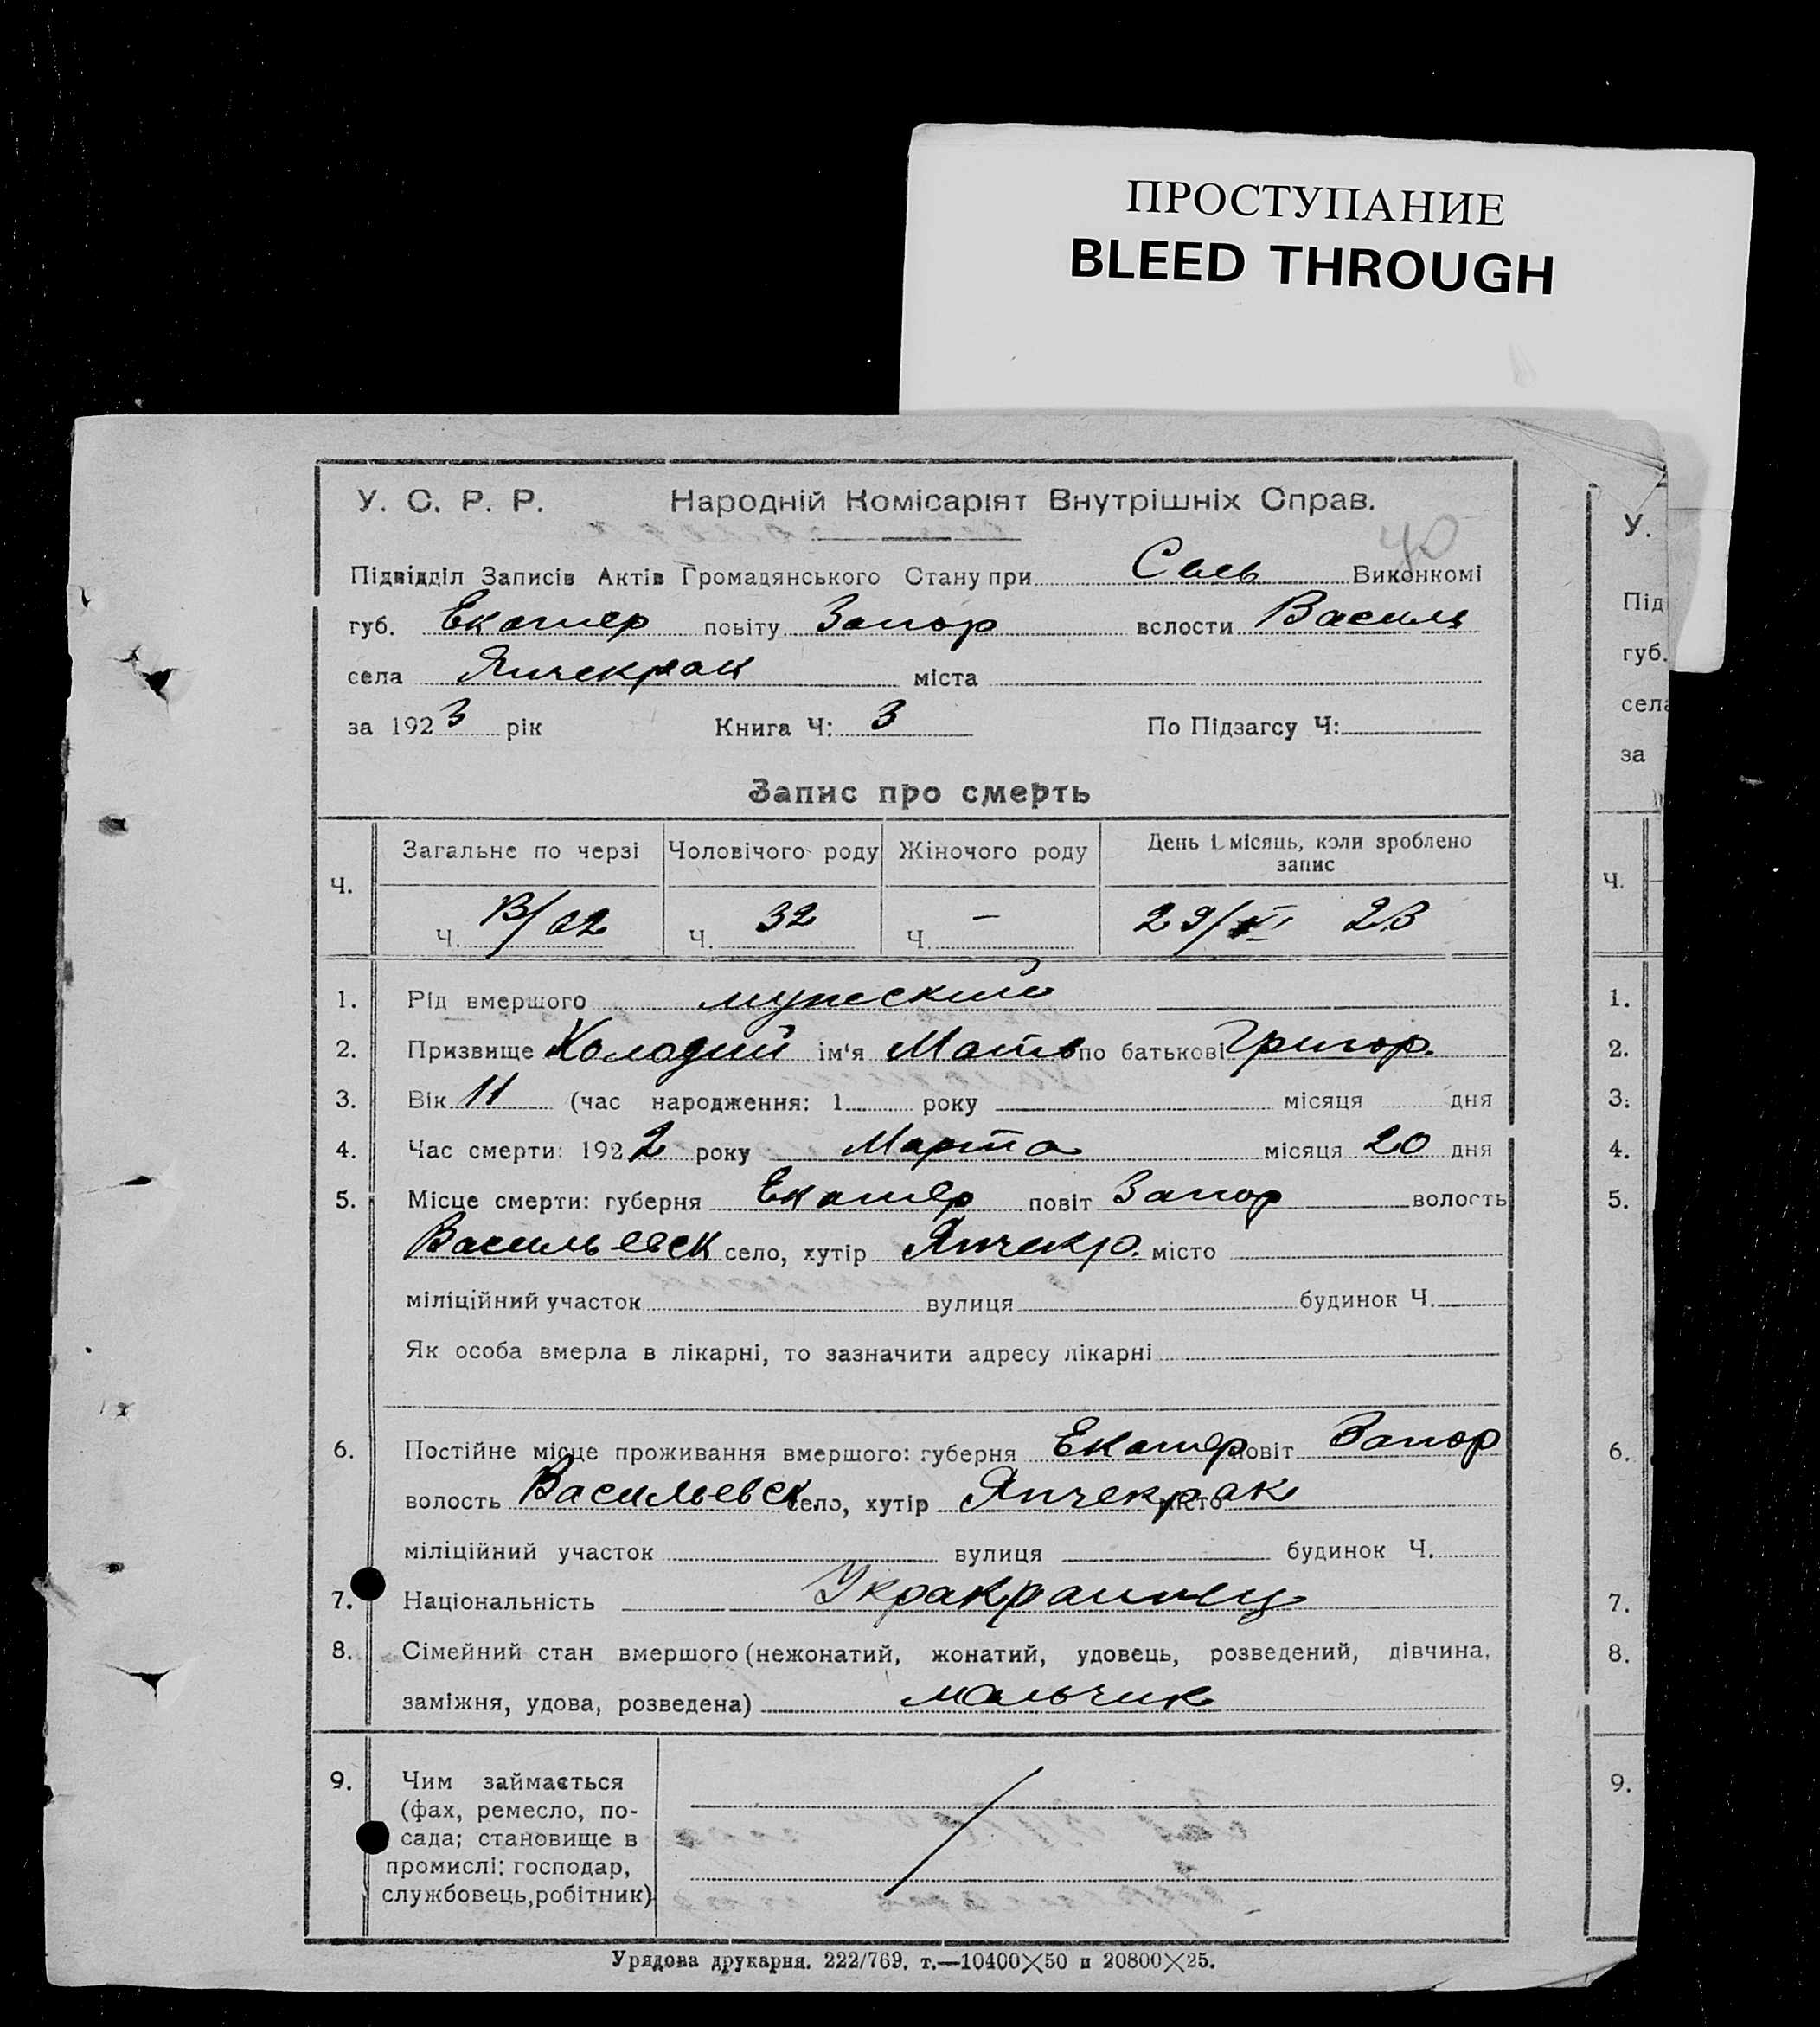 ПРОСТУПАНИЕ
BLEED THROUGH
У. С. Р. Р. Народній Комісаріят Внутрішніх Справ.
40
Підвідділ Записів Актів Громадянського Стану при Сель Виконкомі
губ. Екатер повіту Запор волости Василь
села Янчекрак міста
за 1923 рік Книга Ч: 3 По Підзагсу Ч:
Запис про смерть
Ч. Загальне по черзі Чоловічого роду Жіночого роду День і місяць, коли зроблено запис
Ч. Ч. 32 Ч. — 29/ 23
1. Рід вмершого мужеский
2. Призвище Колодий ім'я Матв по батькові Григор.
3. Вік 11 (час народження: 1 року місяця дня
4. Час смерти: 1922 року Марта місяця 20 дня
5. Місце смерти: губерня Екатер повіт Запор волость
Васильевск село, хутір Янчекр. місто
міліційний участок вулиця будинок Ч.
Як особа вмерла в лікарні, то зазначити адресу лікарні
6. Постійне місце проживання вмершого: губерня Екатер повіт Запор
волость Васильевск село, хутір Янчекрак місто
міліційний участок вулиця будинок Ч.
7. Національність
8. Сімейний стан вмершого (нежонатий, жонатий, удовець, розведений, дівчина,
заміжня, удова, розведена) мальчик
9. Чим займається
(фах, ремесло, по-
сада; становище в
промислі: господар,
службовець,робітник)
Урядова друкарня. 222/769. т.—10400×50 и 20800×25.
У.
Під
губ.
села
за
Ч.
1.
2.
3.
4.
5.
6.
7.
8.
9.